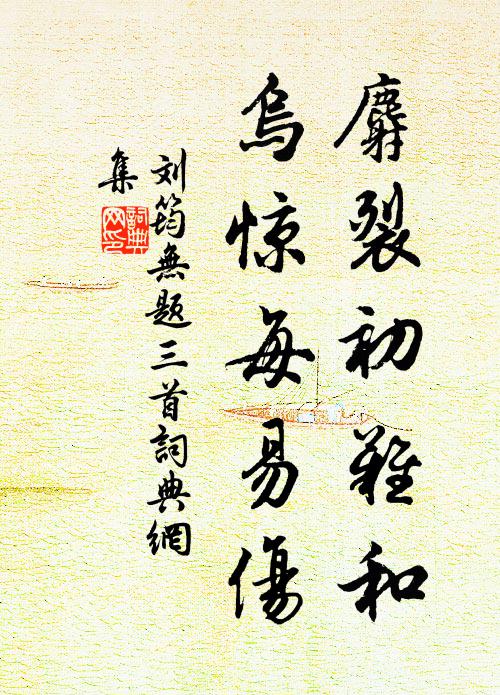 麝裂初難和
烏惊每易傷
刘筠無题三首詞典網
集
詞典
网印